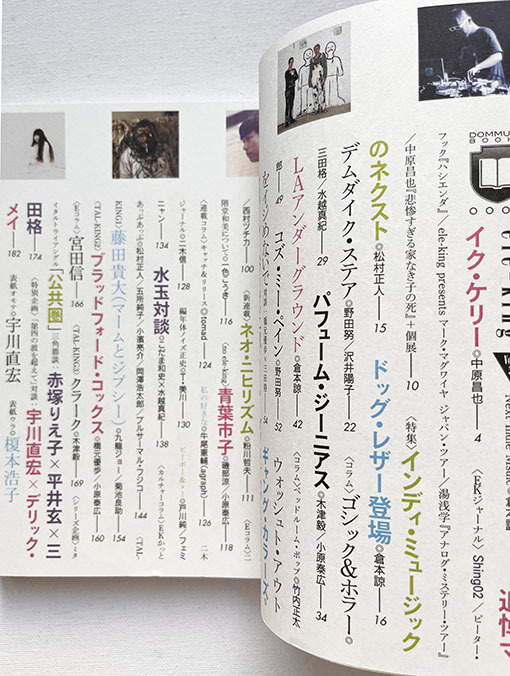 DOMMU
BOOK
ele-king
Next Indie Music
追悼マ
イク・ケリー◎中原昌也—4
〈EKジャーナル〉Shing02／ピーター・
フック『ハシエンダ』／ele-king presents マーク・マグワイヤ ジャパン・ツアー／湯浅学『アナログ・ミステリー・ツアー』
／中原昌也『悲惨すぎる家なき子の死』＋個展—10
〈特集〉インディ・ミュージック
のネクスト◎松村正人—15
ドッグ・レザー登場◎倉本諒—16
デムダイク・ステア◎野田努／沢井陽子—22
〈コラム〉ゴシック&ホラー◎
三田格／水越真紀—29
パフューム・ジーニアス◎木津毅／小原泰広—34
LAアンダーグラウンド◎倉本諒—42
〈コラム〉ベッドルーム・ポップ◎竹内正太
郎—49
コズ・ミー・ペイン◎野田努—52
ウォッシュト・アウト
54
ギャング・カラーズ◎
／西村ツチカ—100
〈新連載〉ネオ・ニヒリズム◎粉川哲夫—111
〈EKコラム〉二
階堂和美について◎一色こうき—116
(no ele-king)青葉市子◎磯部涼／小原泰広—118
〈連載コラム〉キャッチ&リリース◎tomad—124
私の好きな◎牛尾憲輔(agraph)—126
二木
ジャーナル◎二木信—128
編年体ノイズ正史◎T・美川—130
ピーポー&メー◎戸川純／フェミ
ニャン—134
水玉対談◎こだま和史×水越真紀—138
〈カルチャーコラム〉EKかっと
あっぷあっぷ◎松村正人／五所純子／小濱亮介／岡澤浩太郎／プルサーマル・フジコ—144
〈TAL-
KING1〉藤田貴大(マームとジプシー)◎九龍ジョー／菊池良助—154
〈TAL-KING2〉ブラッドフォード・コックス◎橋元優歩／小原泰広—160
〈Eコラム〉宮田信—166
〈TAL-KING〉クラーク◎木津毅—169
〈シリーズ企画〉ミタ
イタルトライアングル「公共圏」
三角籐談：赤塚りえ子×平井玄×三
田格—174
〈特別企画〉「第四の波を超えて」対談：宇川直宏×デリック・
メイ—182
表紙オモテ◎宇川直宏
表紙ウラ◎榎本浩子